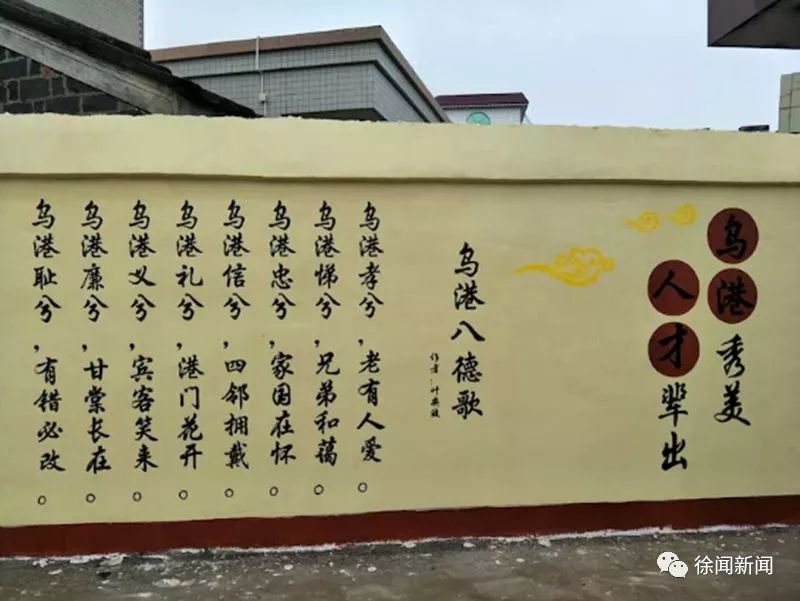 乌港秀美
人才辈出
乌港八德歌
作者:叶
乌港孝兮,老有人爱。
乌港悌兮,兄弟和蔼。
乌港忠兮,家国在怀。
乌港信兮,四邻拥戴。
乌港礼兮,港门花开。
乌港义兮,宾客笑来。
乌港廉兮,甘棠长在。
乌港耻兮,有错必改。
徐闻新闻